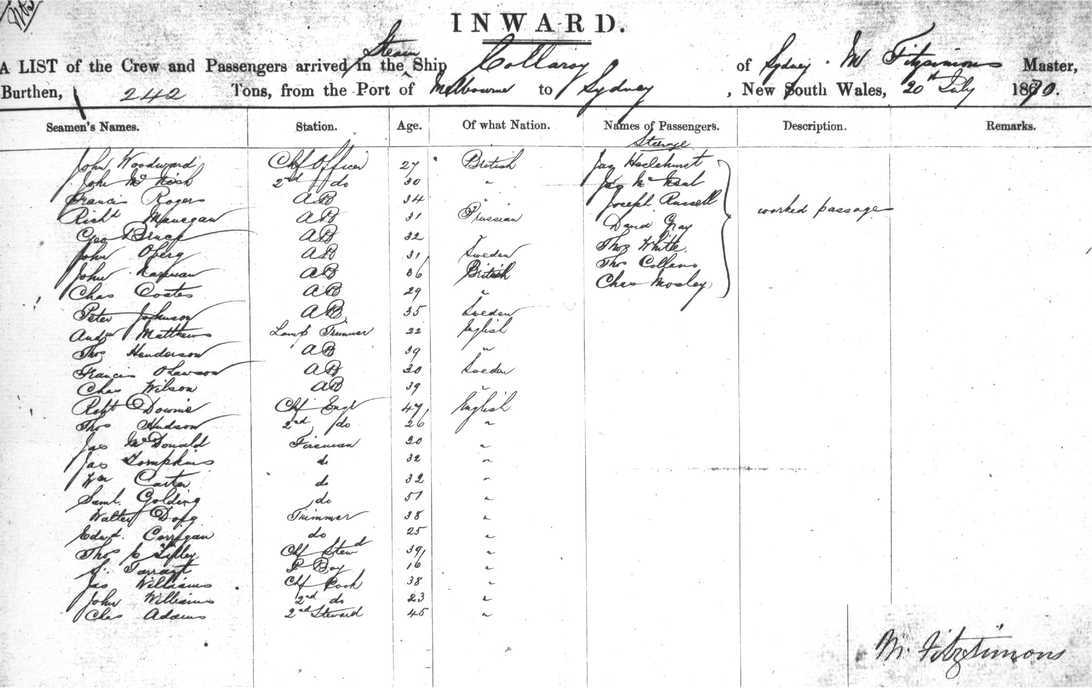 INWARD.
A LIST of the Crew and Passengers arrived in the Steam Ship Collaroy of Sydney. M Fitzsimons Master,
Burthen, 242 Tons, from the Port of Melbourne to Sydney, New South Wales, 20th July 1870.
Seamen's Names. Station. Age. Of what Nation. Names of Passengers. Description. Remarks.
Steerage
John Woodward Chf Officer 27 British Jas
John McNish 2nd do 30 " Jas
Francis Rogers AB 34 " Joseph Russell
Richd AB 31 Prussian David Gray worked passage
Geo Bruce AB 32 " Thos White
John Oberg AB 31 Sweden Thos Collans
John AB 36 British Chas Mosley
Chas Coates AB 29 "
Peter Johnson AB 35 Sweden
Andw Matthews Lamp Trimmer 22 English
Thos Henderson AB 39 "
Francis Olawson AB 30 Sweden
Chas Wilson AB 39 "
Robt Downie Chf Engr 47 English
Thos Hudson 2nd do 26 "
Jas McDonald Fireman 20 "
Jas Tompkins do 32 "
Wm Carter do 32 "
Saml Golding do 51 "
Walter Trimmer 38 "
Edwd Corrigan do 25 "
Thos C Chf Stewd 39 "
S. Tarrant P Boy 16 "
Jas Williams Chf Cook 38 "
John Williams 2nd do 23 "
Chas Adams 2nd Steward 45 "
M. Fitzsimons